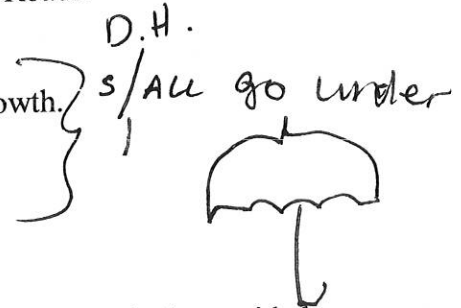 D.H.
owth. S/ALL go under